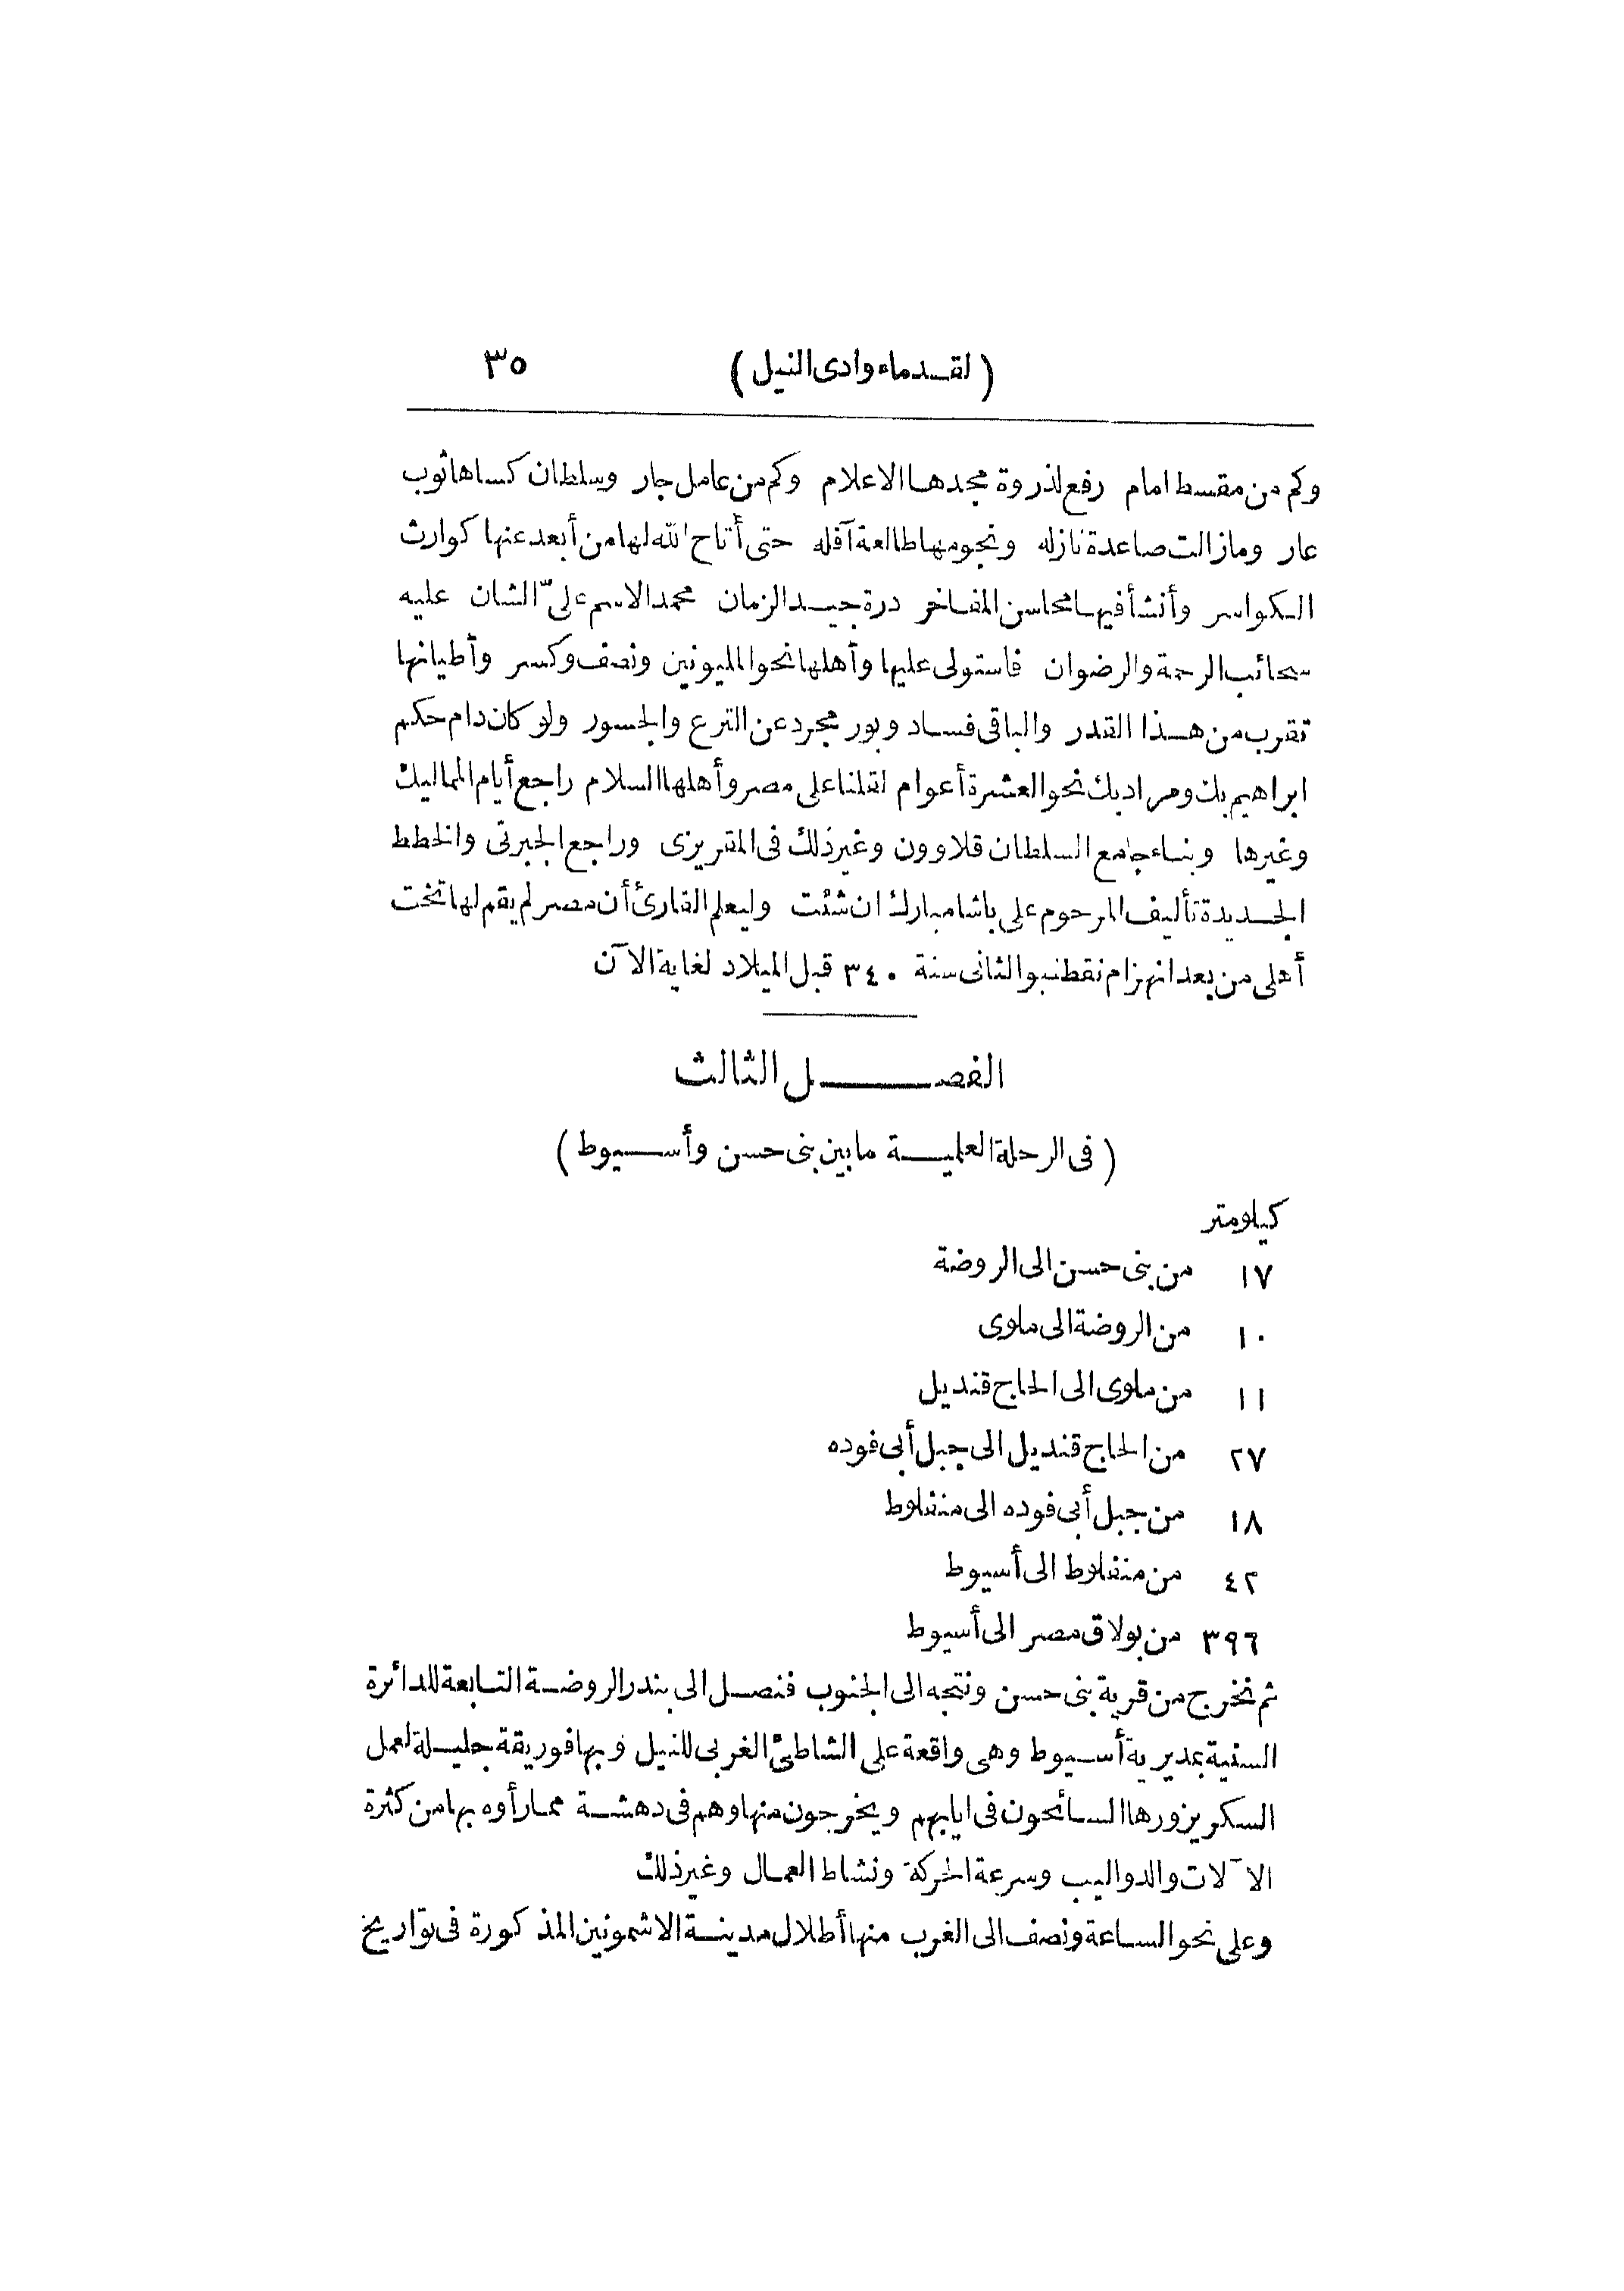 (لقدماء وادى النيل) ٣٥
وكم من مقسط امام رفع لذروة مجدها الاعلام وكم من عامل جار وسلطان كساها ثوب
عار ومازالت صاعدة نازله ونجومها طالعة آفله حتى أتاح الله لها من أبعد عنها كوارث
الكواسر وأنشأ فيها محاسن المفاخر درة جيد الزمان محمد الاسم علىّ الشان عليه
سحائب الرحمة والرضوان فاستولى عليها وأهلها نحو المليونين ونصف وكسر وأطيانها
تقرب من هذا القدر والباقى فساد وبور مجرد عن الترع والجسور ولو كان دام حكم
ابراهيم بك ومراد بك نحو العشرة أعوام لقلنا على مصر وأهلها السلام راجع أيام المماليك
وغيرها وبناء جامع السلطان قلاوون وغير ذلك فى المقريزى وراجع الجبرتى والخطط
الجديدة تأليف المرحوم على باشا مبارك ان شئت وليعلم القارئ أن مصر لم يقم لها تخت
أهلى من بعد انهزام نقطنبو الثانى سنة ٣٤٠ قبل الميلاد لغاية الآن
الفصل الثالث
(فى الرحلة العلمية مابين بنى حسن وأسيوط)
كيلومتر
١٧ من بنى حسن الى الروضة
١٠ من الروضة الى ملوى
١١ من ملوى الى الحاج قنديل
٢٧ من الحاج قنديل الى جبل أبى فوده
١٨ من جبل أبى فوده الى منفلوط
٤٢ من منفلوط الى أسيوط
٣٩٦ من بولاق مصر الى أسيوط
ثم نخرج من قرية بنى حسن ونتجه الى الجنوب فنصل الى بندر الروضة التابعة للدائرة
السنية بمديرية أسيوط وهى واقعة على الشاطئ الغربى للنيل وبها فوريقة جليلة لعمل
السكر يزورها السائحون فى ايابهم ويخرجون منها وهم فى دهشة مما رأوه بها من كثرة
الآلات والدواليب وسرعة الحركة ونشاط العمال وغير ذلك
وعلى نحو الساعة ونصف الى الغرب منها أطلال مدينة الاشمونين المذكورة فى تواريخ